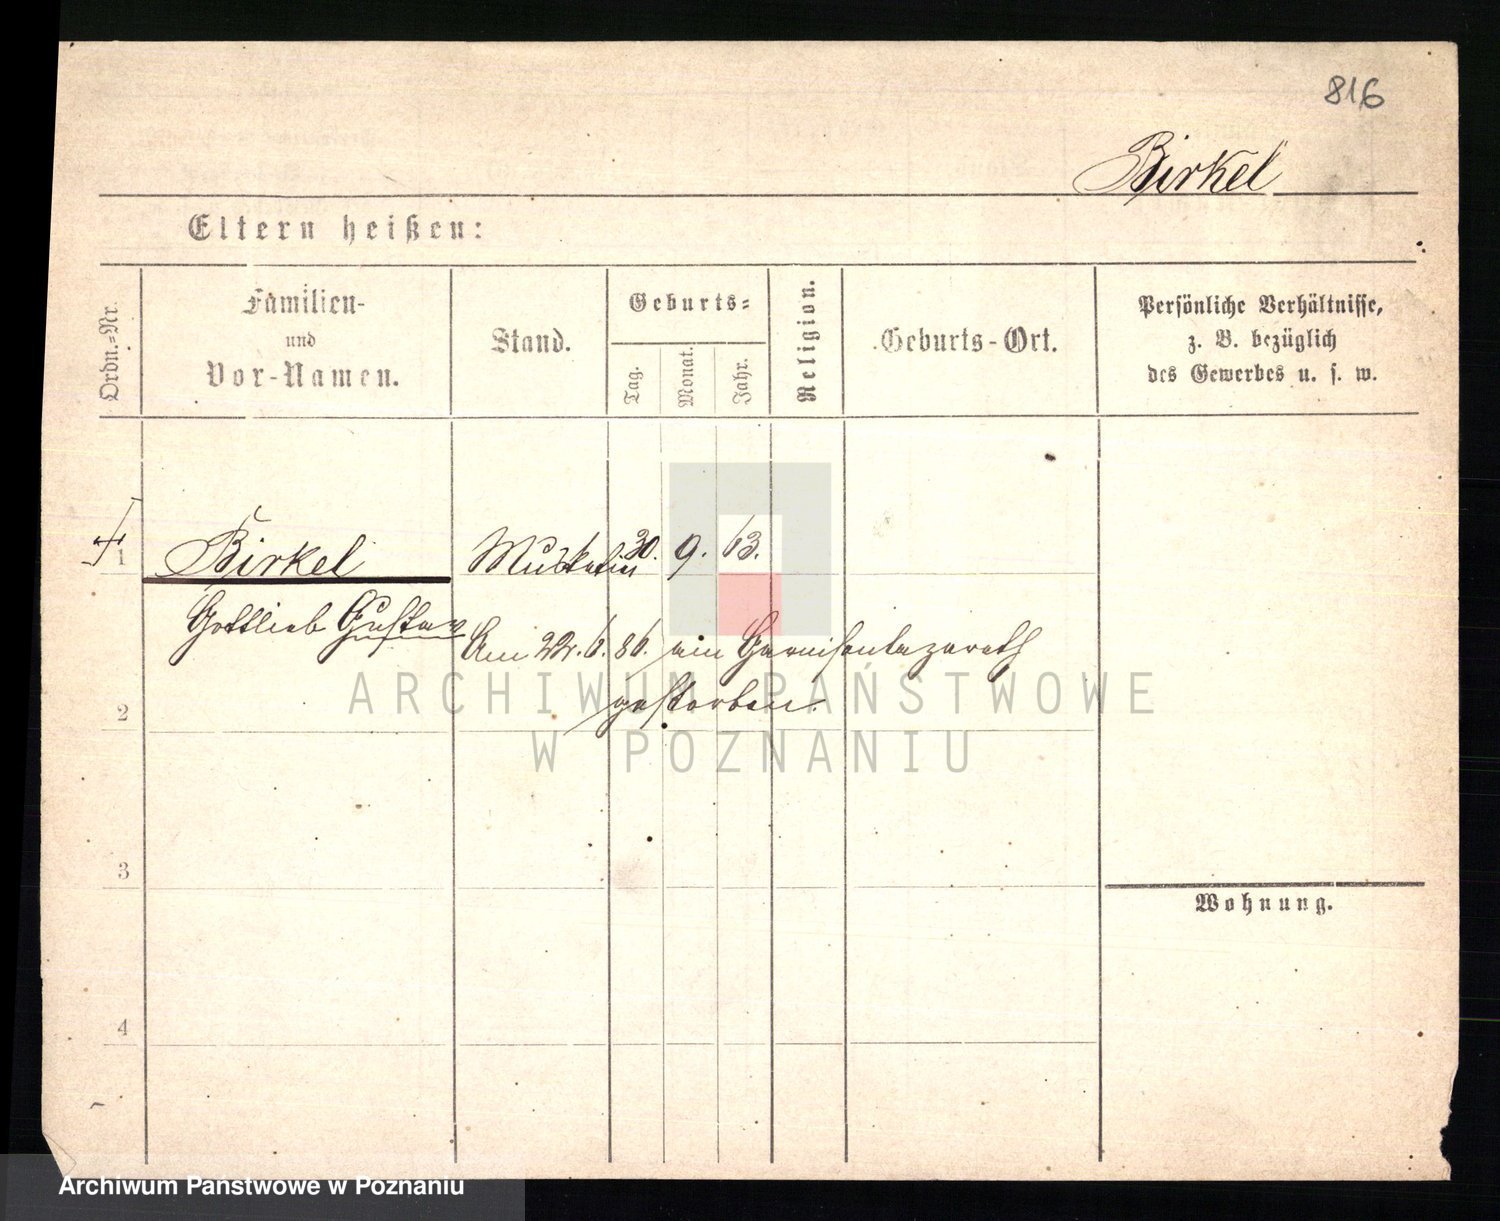 816
Birkel
Eltern heißen:
Ordn.-Nr.
Familien-
und
Vor-Namen.
Stand.
Geburts-
Tag.
Monat.
Jahr.
Religion.
Geburts-Ort.
Persönliche Verhältnisse,
z. B. bezüglich
des Gewerbes u. s. w.
1 Birkel Musketier 30. 9. 63.
Gottlieb Gustav
Am 22. 6. 86. im Garnisonlazareth
gestorben.
2
3
4
Wohnung.
ARCHIWUM PAŃSTWOWE
W POZNANIU
Archiwum Państwowe w Poznaniu